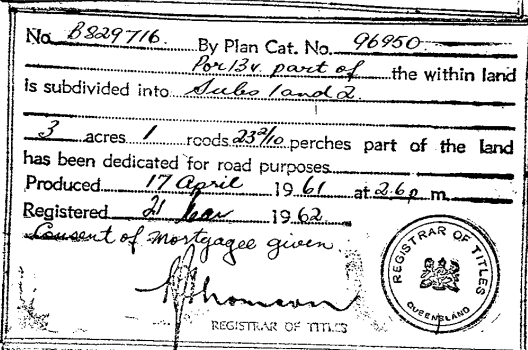 No. B829716. By Plan Cat. No. 96950.
Por 13v. part of the within land
is subdivided into Subs 1 and 2.
3 acres 1 roods 23 2/10 perches part of the land
has been dedicated for road purposes
Produced 17 April 1961 at 2.6 p m.
Registered 21 1962
Consent of Mortgagee given.
Thomson
REGISTRAR OF TITLES
REGISTRAR OF TITLES
QUEENSLAND